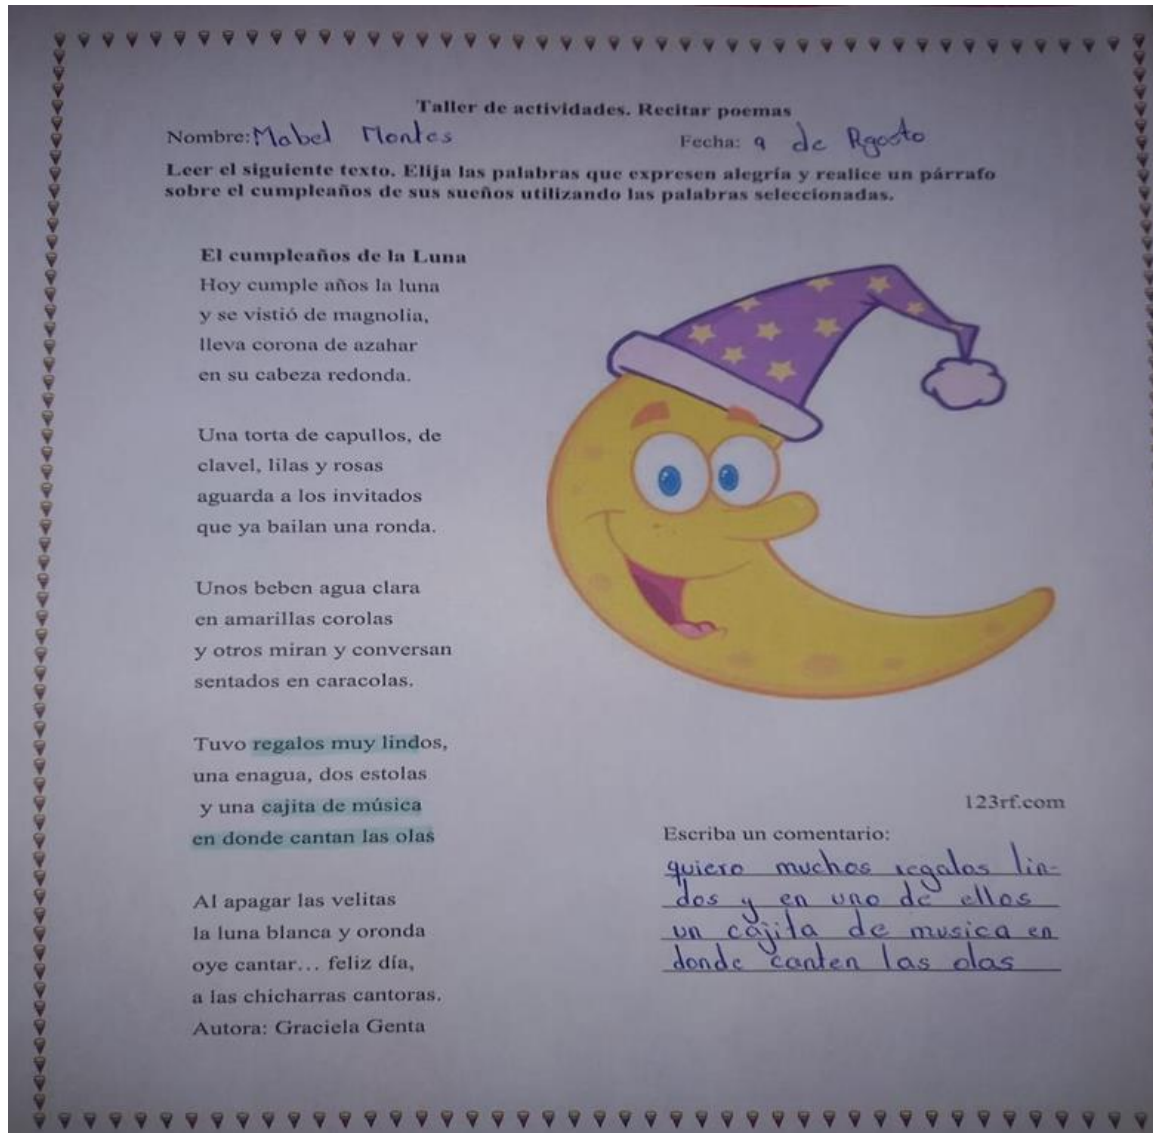 Taller de actividades. Recitar poemas
Nombre: Mabel Montes Fecha: 9 de Agosto
Leer el siguiente texto. Elija las palabras que expresen alegría y realice un párrafo
sobre el cumpleaños de sus sueños utilizando las palabras seleccionadas.
El cumpleaños de la Luna
Hoy cumple años la luna
y se vistió de magnolia,
lleva corona de azahar
en su cabeza redonda.
Una torta de capullos, de
clavel, lilas y rosas
aguarda a los invitados
que ya bailan una ronda.
Unos beben agua clara
en amarillas corolas
y otros miran y conversan
sentados en caracolas.
Tuvo regalos muy lindos,
una enagua, dos estolas
y una cajita de música
en donde cantan las olas
Al apagar las velitas
la luna blanca y oronda
oye cantar... feliz día,
a las chicharras cantoras.
Autora: Graciela Genta
123rf.com
Escriba un comentario:
quiero muchos regalos lin-
dos y en uno de ellos
un cajita de musica en
donde canten las olas